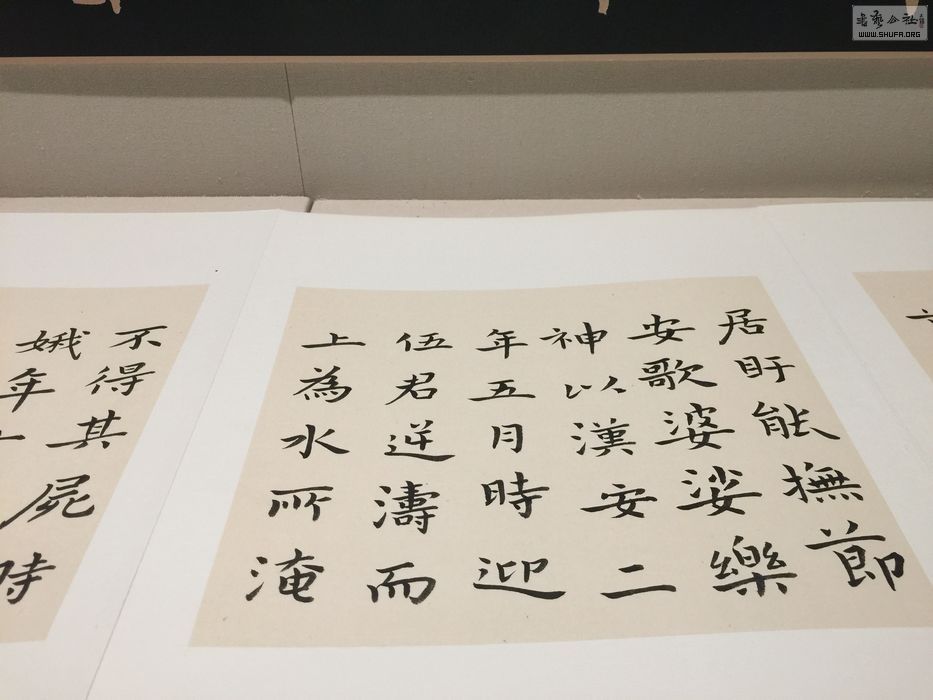 居盱能撫節
安歌婆娑樂
神以漢安二
年五月時迎
伍君逆濤而
上為水所淹
不得其屍時
娥年
WWW.SHUFA.ORG